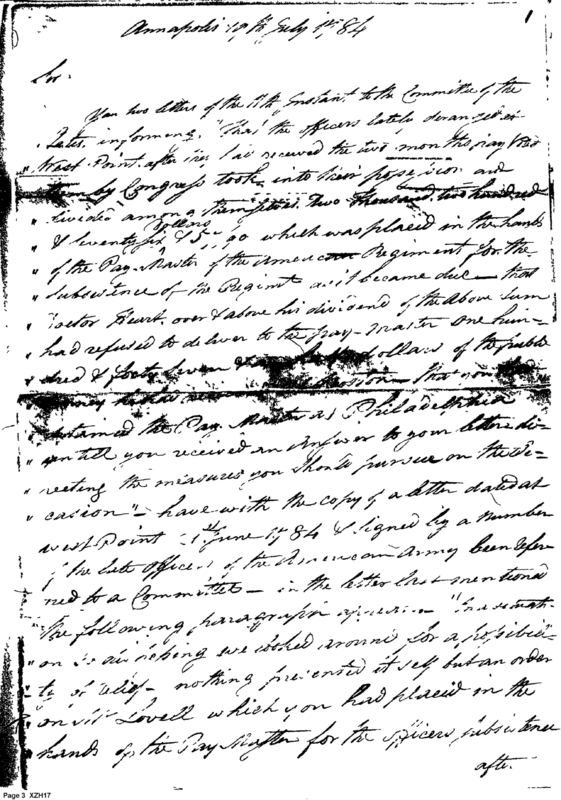 1
Annapolis 19th July 1784
Sir
Your two letters of the 11th Instant to the Committee of the
States, informing "That the officers lately deranged at
" West Point after had received the two months pay
" them by Congress took into their possession and
" divided among themselves two thousand, two hundred
dollars
" & Seventy six & 5/90 which was placed in the hands
" of the Pay-Master of the American Regiment for the
" Subsistence of the Regiment as it became due — that
" Doctor Heart over & above his dividend of the above sum
" had refused to deliver to the pay-master One hun-
" dred & forty seven dollars of the public
" money he had received — that you had
" detained the Pay Master at Philadelphia
" untill you received an Answer to your letter di-
" recting the measures you should pursue on the Oc-
" casion" — have with the copy of a letter dated at
West Point 1st June 1784 & signed by a number
of the late officers of the American Army been refer-
red to a Committee — in the letter last mentioned
the following paragraph appears — "In a situati-
" on so distressing we looked around for a possibili-
" ty of relief — nothing presented itself but an order
" on Mr Lovell which you had placed in the
" hands of the Pay Master for the officers subsistence
after
Page 3 XZH17